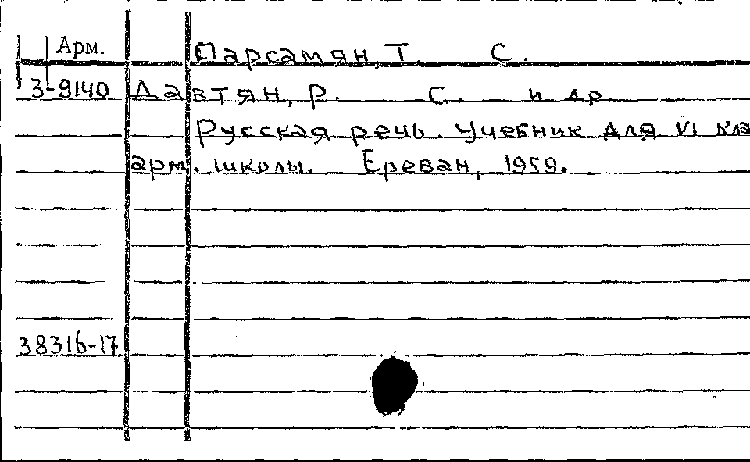 Арм. Парсамян, Т. С.
3-9140 Давтян, Р. С. и др
Русская речь. Учебник для VI кла
арм. школы. Ереван, 1959.
38316-17